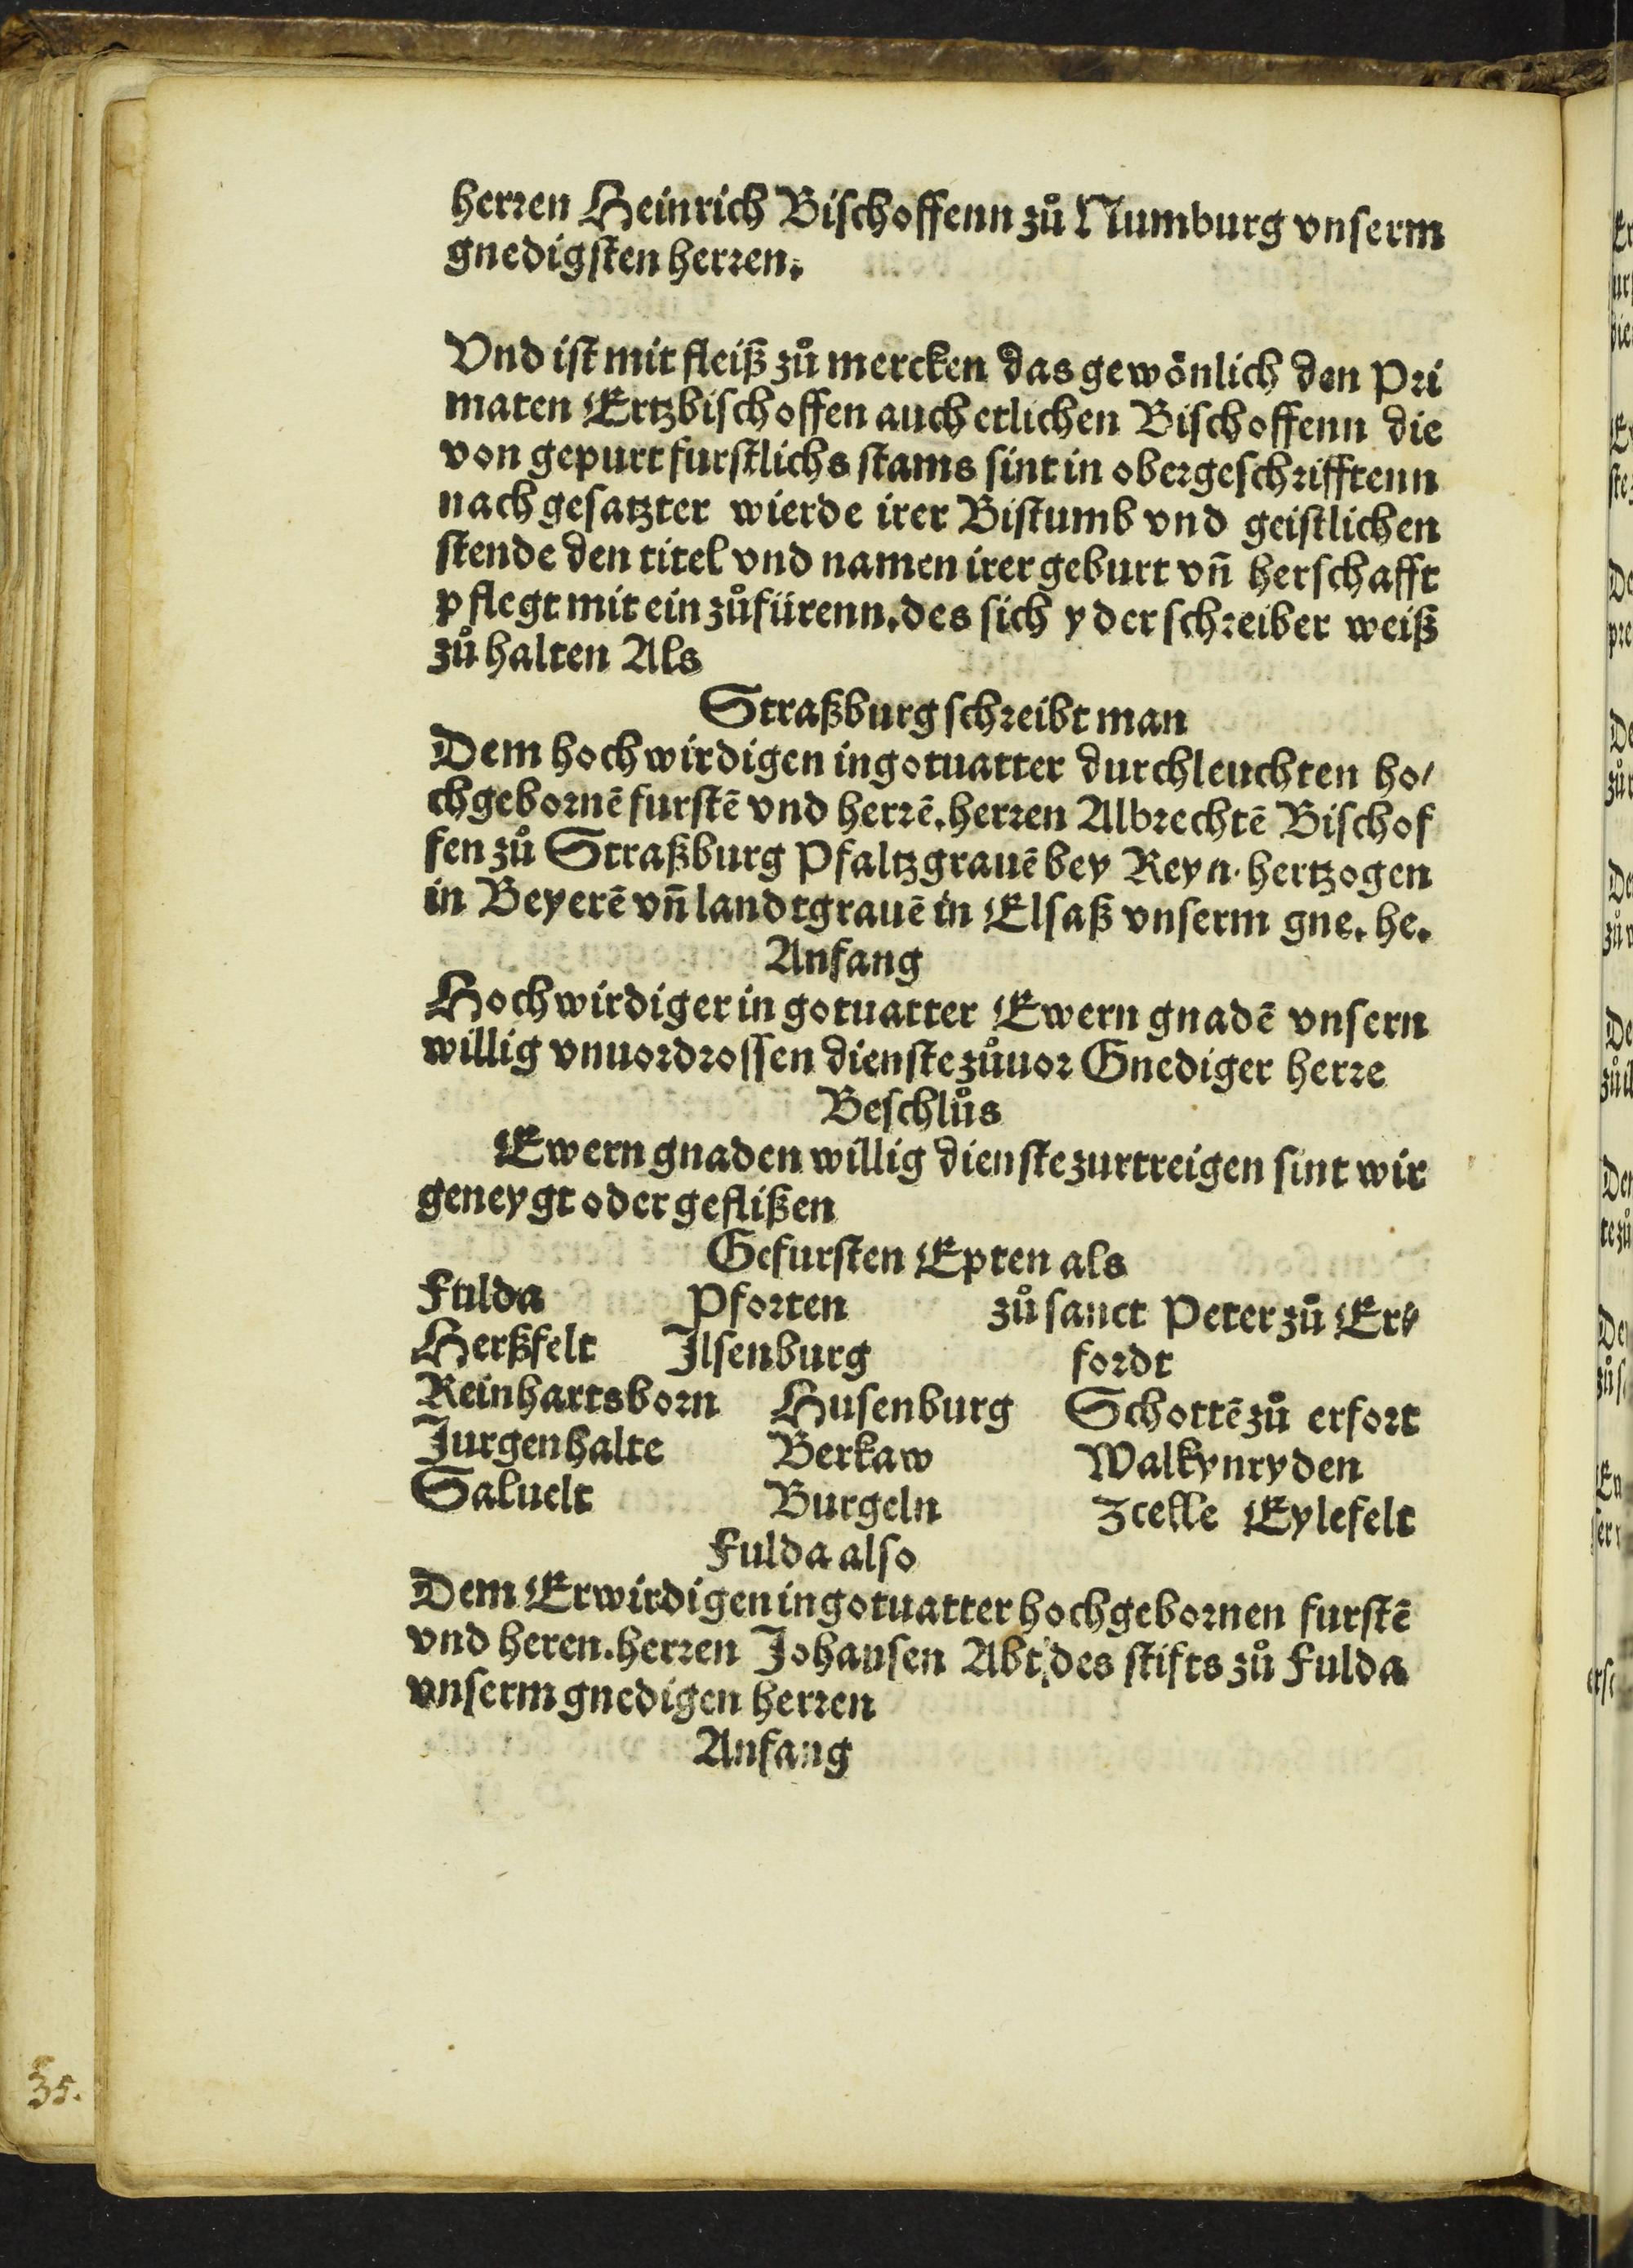 herren Heinrich Bischoffenn zů Numburg vnserm
gnedigsten herren.
Vnd ist mit fleiß zů mercken das gewönlich den Pri
maten Ertzbischoffen auch etlichen Bischoffenn die
von gepurt furstlichs stams sint in obergeschrifftenn
nach gesatzter wierde irer Bistumb vnd geistlichen
stende den titel vnd namen irer geburt vn̄ herschafft
pflegt mit ein zůfürenn. des sich yder schreiber weiß
zů halten Als
Straßburg schreibt man
Dem hochwirdigen in gotuatter durchleuchten ho/
chgebornē furstē vnd herrē. herren Albrechtē Bischof
fen zů Straßburg Pfaltzgrauē bey Reyn. hertzogen
in Beyerē vn̄ landtgrauē in Elsaß vnserm gne. he.
Anfang
Hochwirdiger in gotuatter Ewern gnadē vnsern
willig vnuordrossen dienste zůuor Gnediger herre
Beschlůs
Ewern gnaden willig dienste zurtreigen sint wir
geneygt oder geflißen
Gefursten Epten als
Fulda Pforten zů sanct Peter zů Er/
Herßfelt Ilsenburg fordt
Reinhartsborn Husenburg Schottē zů erfort
Jurgenhalte Berkaw Walkynryden
Saluelt Burgeln Zcelle Eylefelt
Fulda also
Dem Erwirdigen in gotuatter hochgebornen furstē
vnd heren. herren Johansen Abt des stifts zů Fulda
vnserm gnedigen herren
Anfang
35.